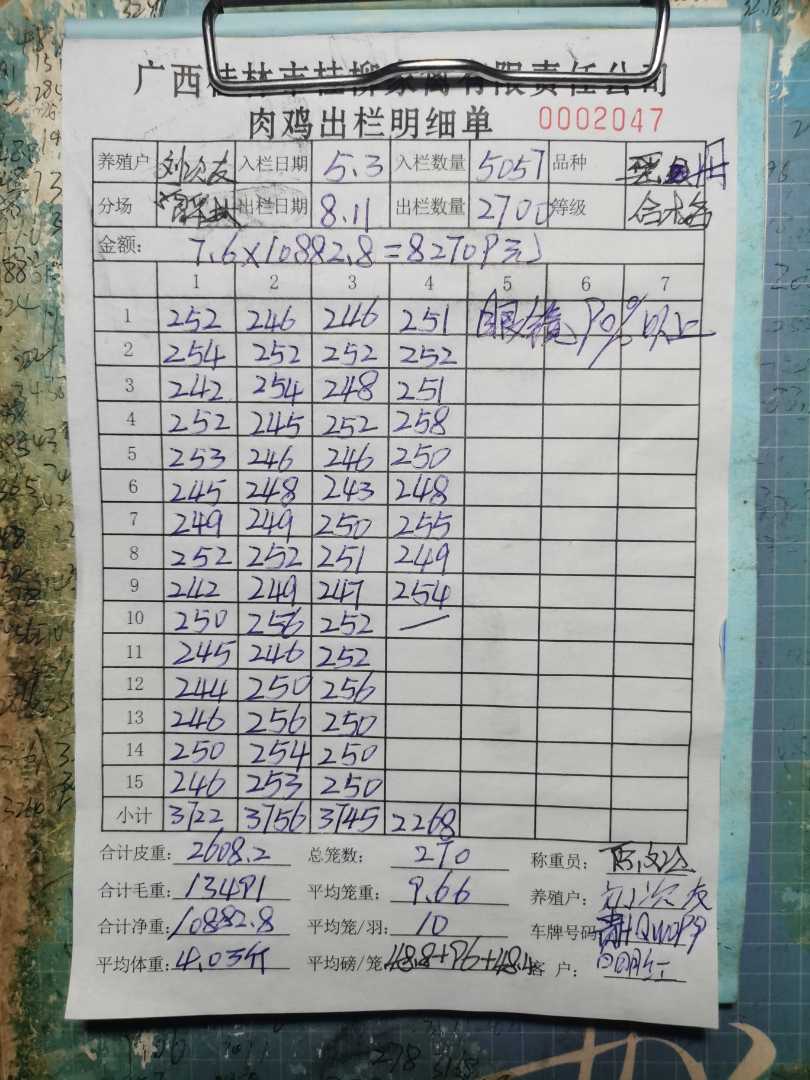 广西桂林市桂柳家禽有限责任公司
肉鸡出栏明细单 0002047
养殖户 刘次友 入栏日期 5.3 入栏数量 5057 品种
分场 出栏日期 8.11 出栏数量 2700 等级 合格
金额: 7.6×10882.8=82709元
1 2 3 4 5 6 7
1 252 246 246 251 90%以上
2 254 252 252 252
3 242 254 248 251
4 252 245 252 258
5 253 246 246 250
6 245 248 243 248
7 249 249 250 255
8 252 252 251 249
9 242 249 247 254
10 250 256 252 —
11 245 246 252
12 244 250 256
13 246 256 250
14 250 254 250
15 246 253 250
小计 3722 3756 3745 2268
合计皮重: 2608.2 总笼数: 270 称重员:
合计毛重: 13491 平均笼重: 9.66 养殖户: 刘次友
合计净重: 10882.8 平均笼/羽: 10 车牌号码
平均体重: 4.03斤 平均磅/笼 48.8+96+48.4 客 户: